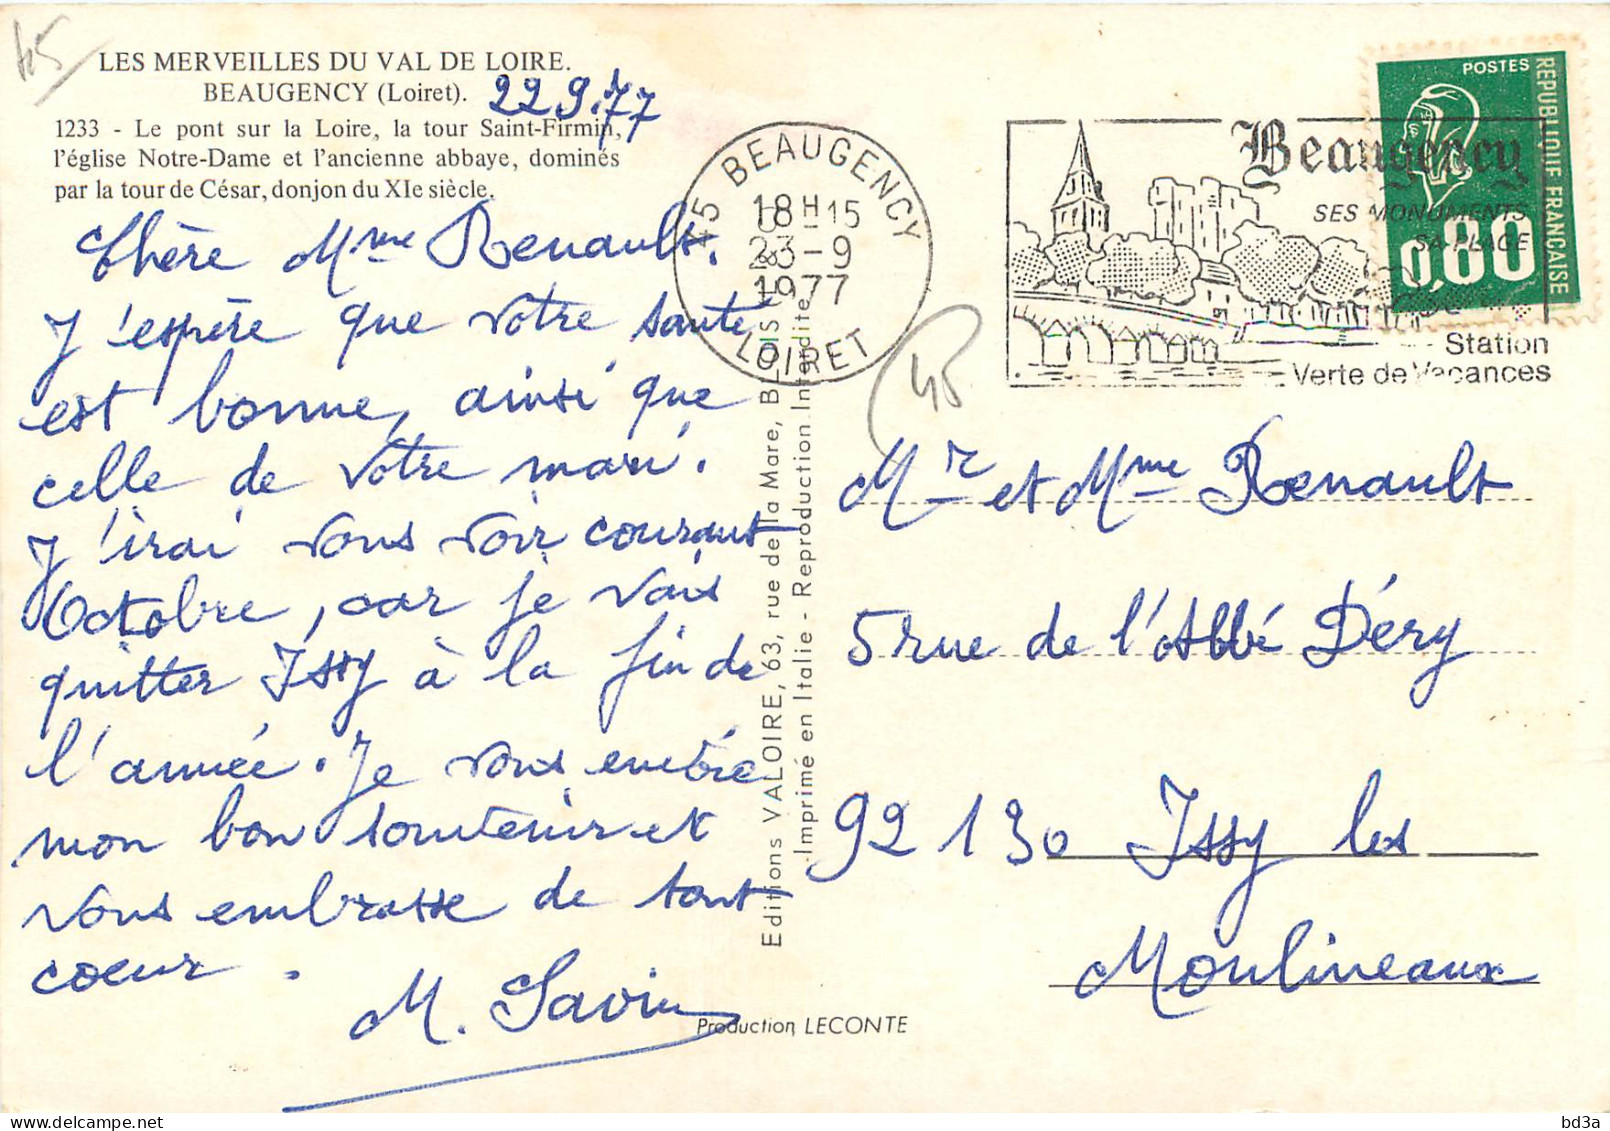 45
LES MERVEILLES DU VAL DE LOIRE.
BEAUGENCY (Loiret).
22.9.77
1233 - Le pont sur la Loire, la tour Saint-Firmin,
l'église Notre-Dame et l'ancienne abbaye, dominés
par la tour de César, donjon du XIe siècle.
Chère Mme Renault.
J'espère que votre santé
est bonne, ainsi que
celle de votre mari.
J'irai vous voir courant
Octobre, car je vais
quitter Issy à la fin de
l'année. Je vous envoie
mon bon souvenir et
vous embrasse de tout
coeur.
M. Savin
45 BEAUGENCY
18H15
23-9
1977
LOIRET
Beaugency
SES MONUMENTS
SA PLAGE
Station
Verte de Vacances
POSTES
REPUBLIQUE FRANÇAISE
0,80
45
Editions VALOIRE, 63, rue de la Mare, BLOIS
Imprimé en Italie - Reproduction Interdite
Mr et Mme Renault
5 rue de l'Abbé Déry
92130 Issy les
Moulineaux
Production LECONTE
bd3a